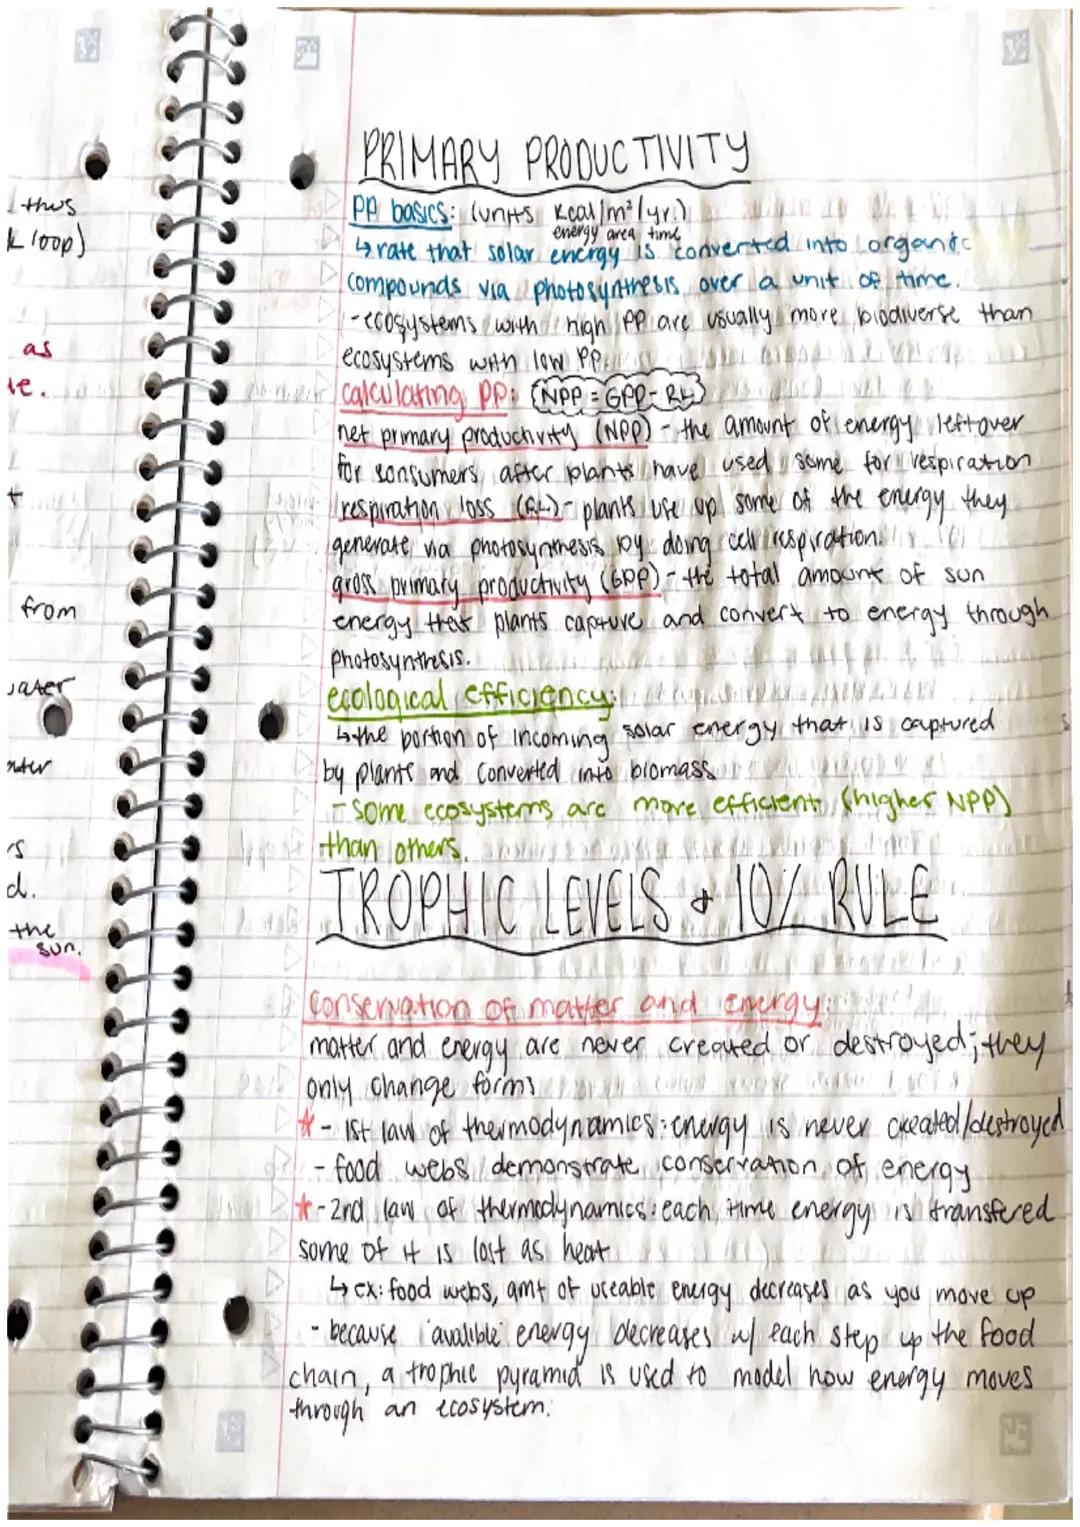 thus
loop)
as
from
water
the
sun.
PRIMARY PRODUCTIVITY
PP basics: (units Kcal/m²/yr.)
energy area time
↳ rate that solar energy is converted into organic
compounds via photosynthesis over a unit of time.
- ecosystems with high PP are usually more biodiverse than
ecosystems with low PP.
calculating PP: (NPP = GPP - RL)
net primary productivity (NPP) - the amount of energy leftover
for consumers after plants have used some for respiration
respiration loss (RL) - plants use up some of the energy they
generate via photosynthesis by doing cell respiration.
gross primary productivity (GPP) - the total amount of sun
energy that plants capture and convert to energy through
photosynthesis.
ecological efficiency:
↳ the portion of incoming solar energy that is captured
by plants and converted into biomass
- some ecosystems are more efficient (higher NPP)
than others.
TROPHIC LEVELS & 10% RULE
conservation of matter and energy:
matter and energy are never created or destroyed; they
only change forms
* - 1st law of thermodynamics: energy is never created/destroyed
- food webs demonstrate conservation of energy
* - 2nd law of thermodynamics: each time energy is transfered
some of it is lost as heat
↳ ex: food webs, amt of useable energy decreases as you move up
- because avalible energy decreases w/ each step up the food
chain, a trophic pyramid is used to model how energy moves
through an ecosystem.